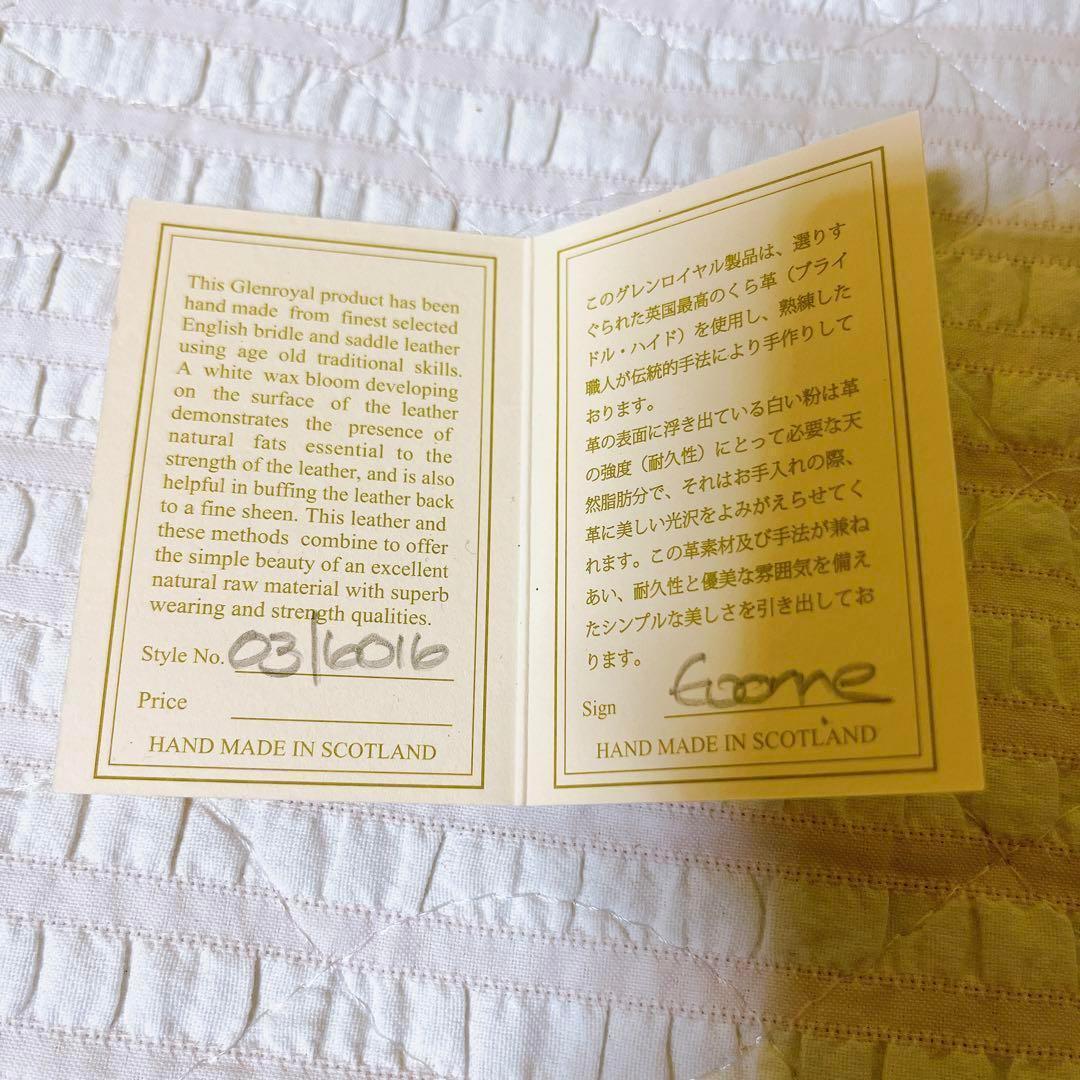 This Glenroyal product has been
hand made from finest selected
English bridle and saddle leather
using age old traditional skills.
A white wax bloom developing
on the surface of the leather
demonstrates the presence of
natural fats essential to the
strength of the leather, and is also
helpful in buffing the leather back
to a fine sheen. This leather and
these methods combine to offer
the simple beauty of an excellent
natural raw material with superb
wearing and strength qualities.
Style No. 03/6016
Price
HAND MADE IN SCOTLAND
このグレンロイヤル製品は、選りす
ぐられた英国最高のくら革（ブライ
ドル・ハイド）を使用し、熟練した
職人が伝統的手法により手作りして
おります。
革の表面に浮き出ている白い粉は革
の強度（耐久性）にとって必要な天
然脂肪分で、それはお手入れの際、
革に美しい光沢をよみがえらせてく
れます。この革素材及び手法が兼ね
あい、耐久性と優美な雰囲気を備え
たシンプルな美しさを引き出してお
ります。
Sign
HAND MADE IN SCOTLAND